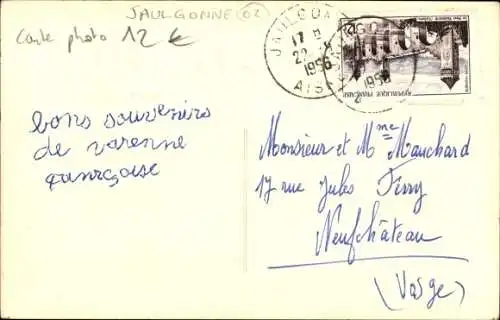 JAULGONNE (02)
Carte photo 12 €
JAULGO
17 H
22
1956
AISNE
1956
RÉPUBLIQUE FRANÇAISE
bons souvenirs
de varenne
Monsieur et Mme Manchard
17 rue Jules Ferry
Neufchâteau
(Vosge)